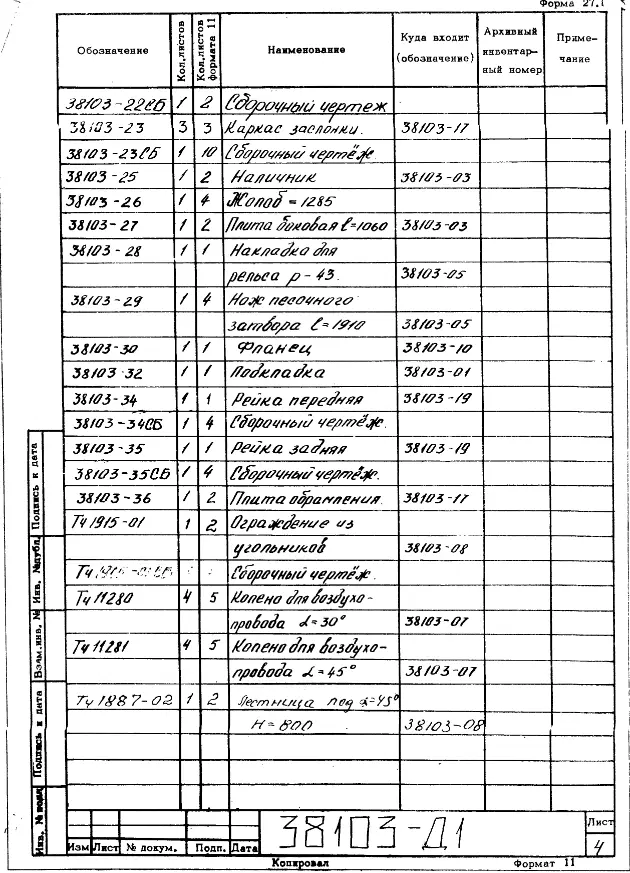 Форма 27.1
Обозначение Кол.листов Кол.листов формата 11 Наименование Куда входит (обозначение) Архивный инвентарный номер Примечание
38103-22СБ 1 2 Сборочный чертеж
38103-23 3 3 Каркас заслонки. 38103-17
38103-23СБ 1 10 Сборочный чертёж.
38103-25 1 2 Наличник 38103-03
38103-26 1 4 Жолоб = 1285
38103-27 1 2 Плита боковая l=1060 38103-03
38103-28 1 1 Накладка для
рельса р-43. 38103-05
38103-29 1 4 Нож песочного
затвора l=1910 38103-05
38103-30 1 1 Фланец 38103-10
38103 32 1 1 Подкладка 38103-01
38103-34 1 1 Рейка передняя 38103-19
38103-34СБ 1 4 Сборочный чертёж.
38103-35 1 1 Рейка задняя 38103-19
38103-35СБ 1 4 Сборочный чертёж.
38103-36 1 2 Плита обрамления. 38103-17
Тч1915-01 1 2 Ограждение из
угольников 38103-08
Тч1915-01СБ Сборочный чертёж.
Тч11280 4 5 Колено для воздухо-
провода α=30° 38103-07
Тч11281 4 5 Колено для воздухо-
провода α=45° 38103-07
Тч1887-02 1 2 Лестница под α=45°
Н=800 38103-08
Подпись и дата
Инв. № дубл.
Взам.инв. №
Подпись и дата
Инв. № подл
Изм Лист № докум. Подп. Дата
38103-Д1
Лист
4
Копировал Формат 11